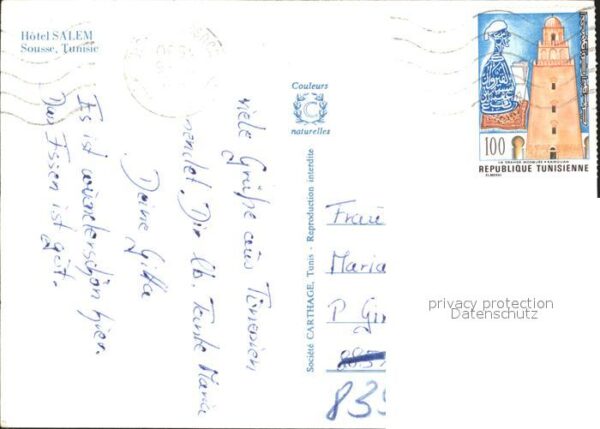 Hôtel SALEM
Sousse, Tunisie
Couleurs
naturelles
Société CARTHAGE, Tunis - Reproduction interdite
viele Grüße aus Tunesien
sendet Dir lb. Tante Maria
Deine Gilla
Es ist wunderschön hier.
Das Essen ist gut.
100
LA GRANDE MOSQUEE KAIROUAN
REPUBLIQUE TUNISIENNE
Frau
Maria
P
835
privacy protection
Datenschutz